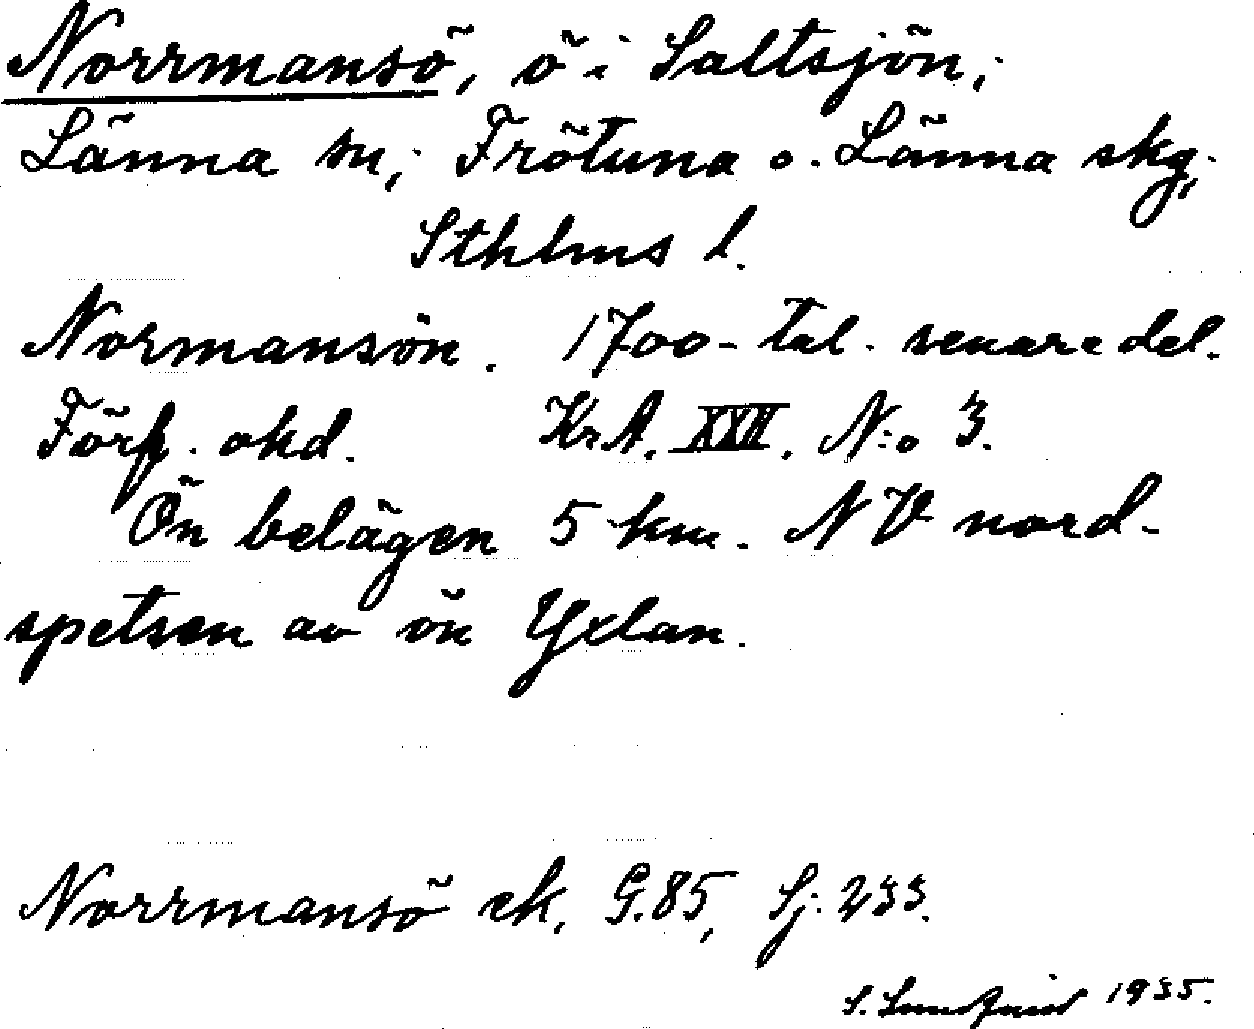 Norrmansö, ö i Saltsjön,
Länna sn, Frötuna o. Länna skg,
Sthlms l.
Normansön. 1700-tal. senare del.
Förf. okd. KrA. XVII. N:o 3.
Ön belägen 5 km. NV nord-
spetsen av ön Yxlan.
Norrmansö ek, G.85, Sj. 233.
S. Lundquist 1935.